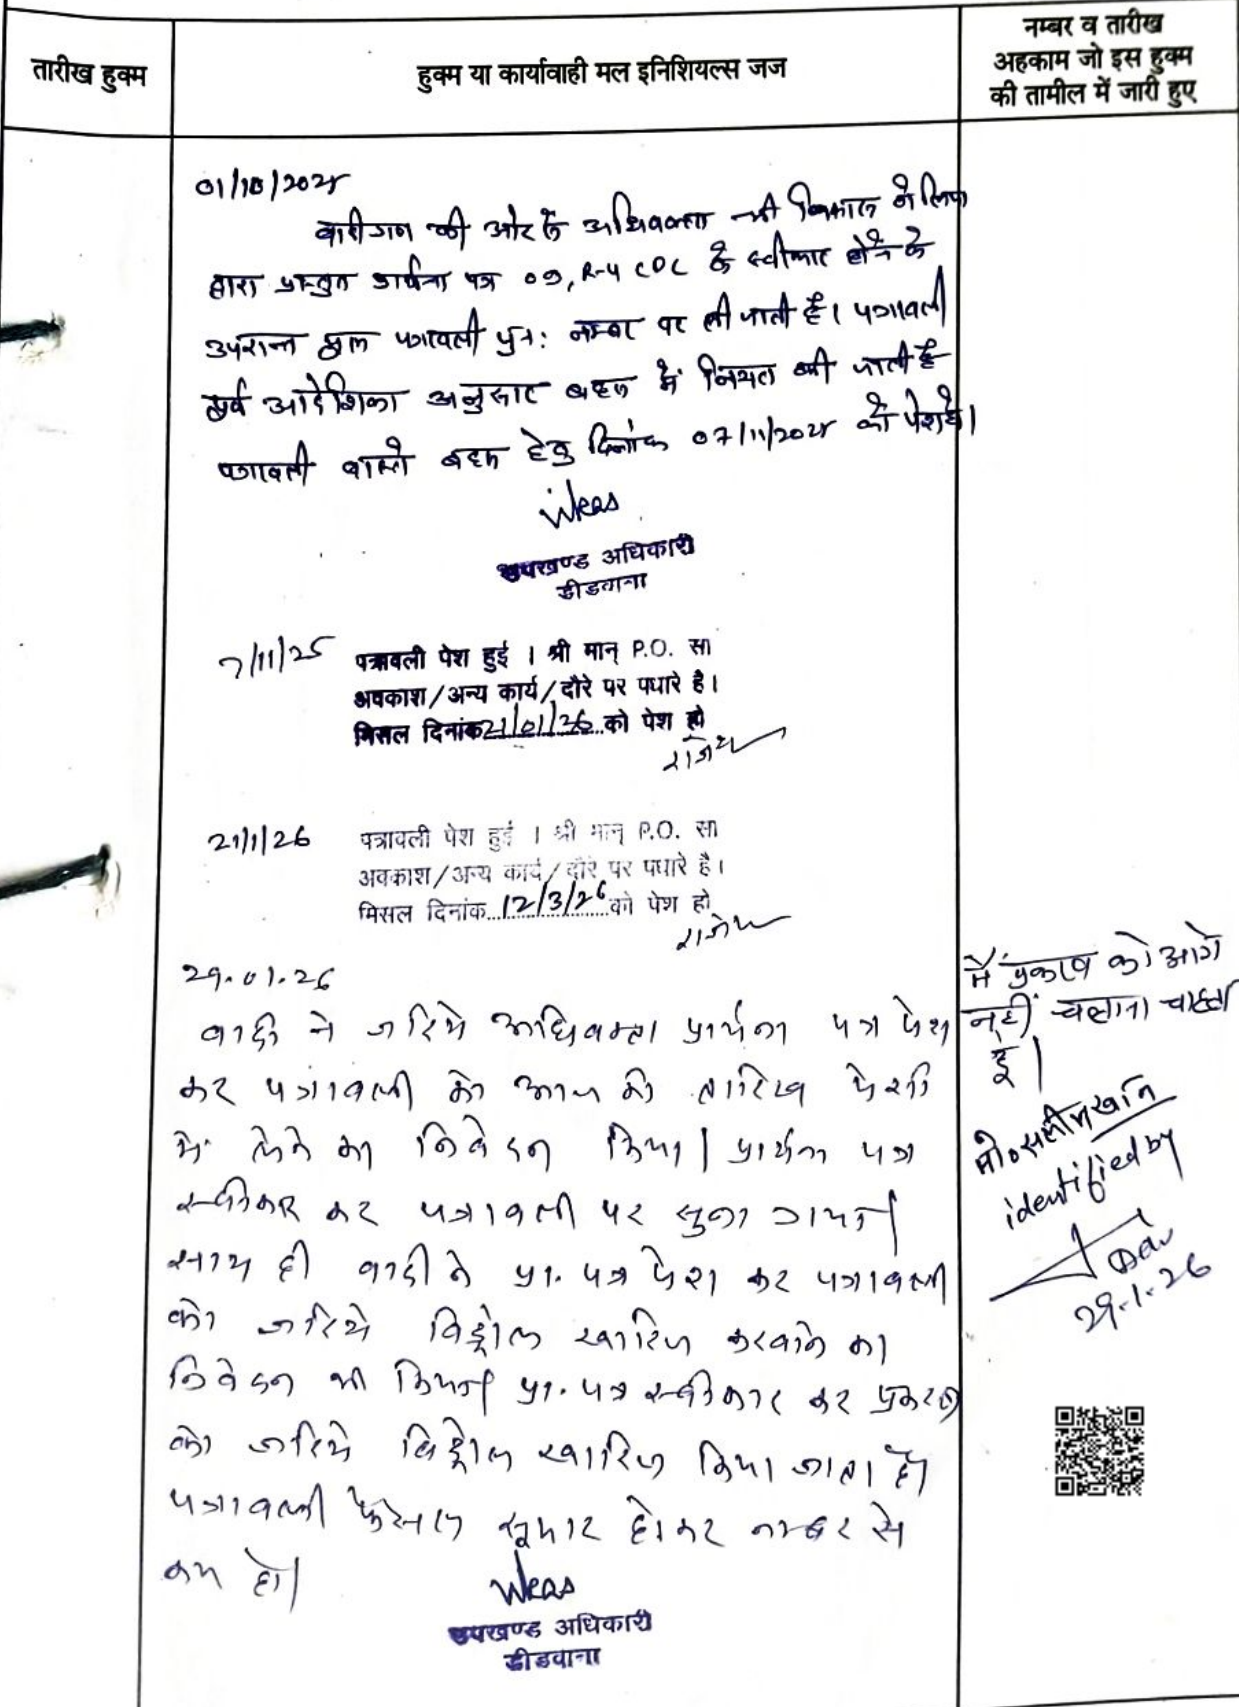 तारीख हुक्म
हुक्म या कार्यावाही मल इनिशियल्स जज
नम्बर व तारीख
अहकाम जो इस हुक्म
की तामील में जारी हुए
01/10/2025
वादीगण की ओर से अधिवक्ता श्री
द्वारा प्रस्तुत प्रार्थना पत्र 09, R-4 CPC के स्वीकार होने के
उपरान्त मूल पत्रावली पुन: नम्बर पर ली जाती है। पत्रावली
पूर्व आदेशिका अनुसार बहस में नियत की जाती है
पत्रावली वास्ते बहस हेतु दिनांक 07/11/2025 को पेश हो।
उपखण्ड अधिकारी
डीडवाना
7/11/25 पत्रावली पेश हुई । श्री मान् P.O. सा
अवकाश/अन्य कार्य/दौरे पर पधारे है।
मिसल दिनांक 21/01/26 को पेश हो
21/1/26 पत्रावली पेश हुई । श्री मान् P.O. सा
अवकाश/अन्य कार्य/दौरे पर पधारे है।
मिसल दिनांक 12/3/26 को पेश हो
29.01.26
वादी ने जरिये अधिवक्ता प्रार्थना पत्र पेश
कर पत्रावली को आज की तारिख पेशी
में लेने का निवेदन किया। प्रार्थना पत्र
स्वीकार कर पत्रावली पर सुना गया।
साथ ही वादी ने प्रा. पत्र पेश कर पत्रावली
को जरिये विड्रोल खारिज करवाने का
निवेदन भी किया। प्रा. पत्र स्वीकार कर प्रकरण
को जरिये विड्रोल खारिज किया जाता है।
पत्रावली फैसल सूमार होकर नम्बर से
कम हो।
उपखण्ड अधिकारी
डीडवाना
मैं प्रकरण को आगे
नहीं चलाना चाहता
हूं।
मो० सलीम खान
identified by
29-1-26